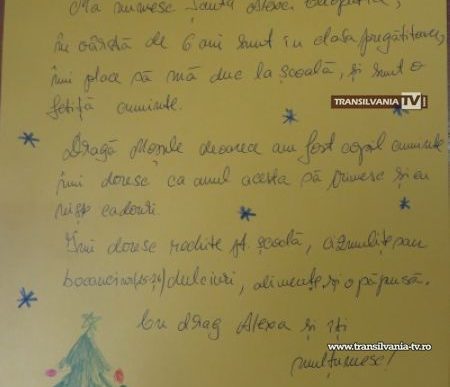 Mă numesc Sauta Alexa
în vârstă de 6 ani sunt în clasa pregătitoare,
îmi place să mă duc la școală, și sunt o
fetiță cuminte.
TRANSILVANIA TV
Dragă Moșule deoarece am fost copil cuminte
îmi doresc ca anul acesta să primesc și eu
niște cadouri.
Îmi doresc rochițe pt. școală, cizmulițe sau
bocancino(25-26) dulciuri, alimente, și o păpușă.
Cu drag Alexa și îți
mulțumesc!
www.transilvania-tv.ro